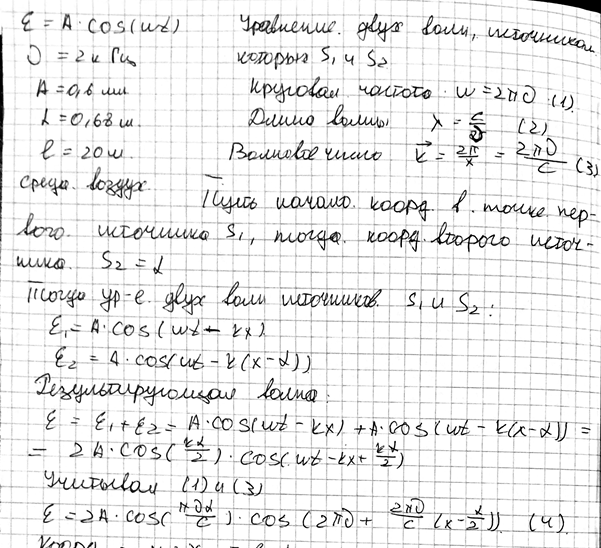 ξ = A·cos(ωt) Уравнение двух волн, источником
ν = 2кГц которых S₁ и S₂
A = 0,6 мм Круговая частота ω = 2πν (1)
α = 0,68 м. Длина волны λ = c/ν (2)
l = 20м. Волновое число k⃗ = 2π/λ = 2πν/c (3)
среда воздух Пусть начало коорд. в точке пер-
вого источника S₁, тогда коорд. второго источ-
ника S₂ = α
Тогда ур-е двух волн источников S₁ и S₂:
ξ₁ = A·cos(ωt - kx)
ξ₂ = A·cos(ωt - k(x-α))
Результирующая волна:
ξ = ξ₁+ξ₂ = A·cos(ωt - kx) + A·cos(ωt - k(x-α)) =
= 2A·cos(kα/2)·cos(ωt - kx + kα/2)
Учитывая (1) и (3)
ξ = 2A·cos(πνα/c)·cos(2πν + 2πν/c (x - α/2)) (4)